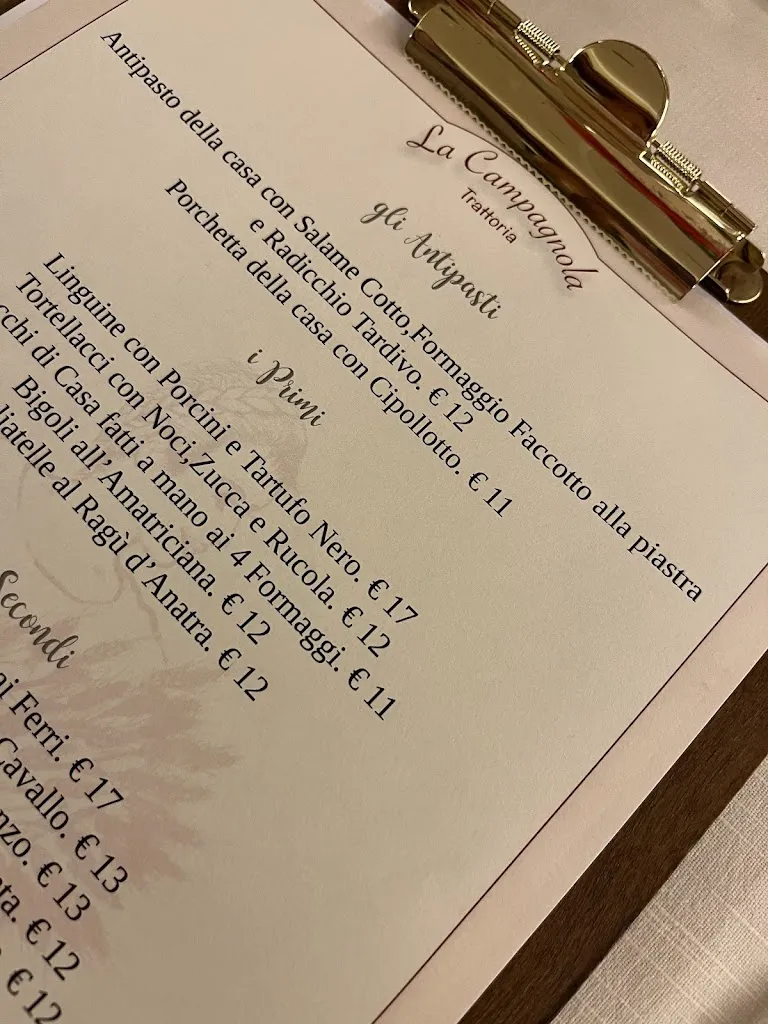 La Campagnola
Trattoria
gli Antipasti
Antipasto della casa con Salame Cotto,Formaggio Faccotto alla piastra
e Radicchio Tardivo. € 12
Porchetta della casa con Cipollotto. € 11
i Primi
Linguine con Porcini e Tartufo Nero. € 17
Tortellacci con Noci,Zucca e Rucola. € 12
cchi di Casa fatti a mano ai 4 Formaggi. € 11
Bigoli all'Amatriciana. € 12
liatelle al Ragù d'Anatra. € 12
Secondi
ai Ferri. € 17
Cavallo. € 13
nzo. € 13
ta. € 12
€ 12